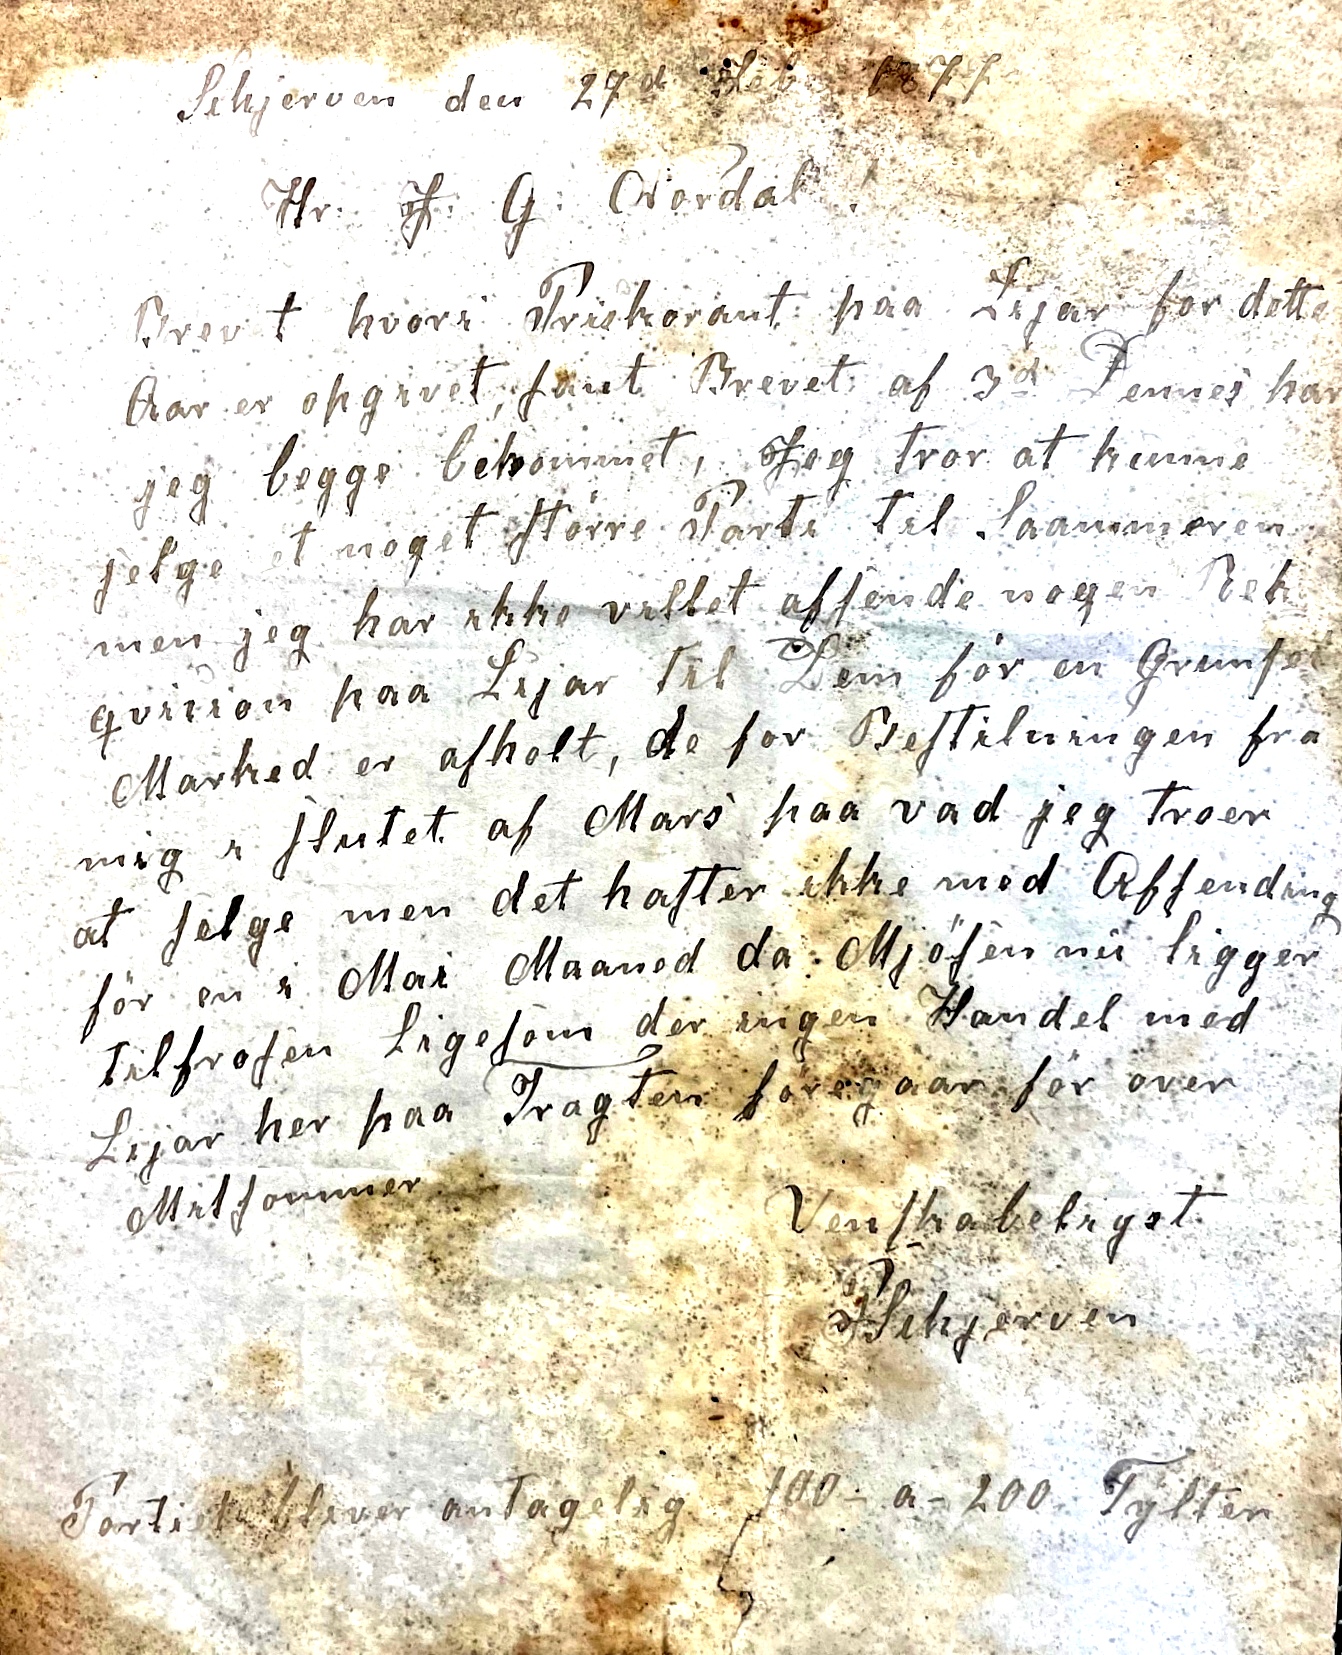 Schjerven den 27d Feb 1877
Hr. J. G. Nordal!
Brevet hvori Priskorant paa Lijar for dette
Aar er opgivet, samt Brevet af 3d Dennes har
jeg begge bekommet, Jeg tror at kunne
selge et noget større Parti til Saammeren
men jeg har ikke villet afsende nogen Rek
qvision paa Lijar til Dem før en Grunset
Marked er afholt, de for Bestilningen fra
mig i slutet af Mars paa vad jeg troer
at selge men det haster ikke med Affending
før en i Mai Maaned da Mjøsen nu ligger
tilfrosen Ligesom der ingen Handel med
Lijar her paa Tragten føregaar før over
Mitsommer
Venskabeligst
Schjerven
Partiet bliver antagelig 100 - a - 200 Tylter